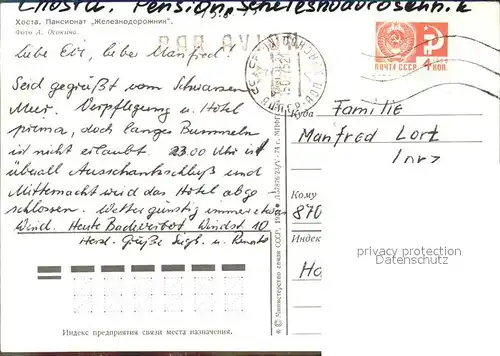 Chosta, Pension
Хоста. Пансионат „Железнодорожник".
Фото А. Осокина.
Liebe Evi, liebe Manfred.
Seid gegrüßt vom Schwarzen
Meer. Verpflegung u. Hotel
prima, doch langes Bummeln
ist nicht erlaubt. 23.00 Uhr ist
überall Ausschankschluß und
Mitternacht wird das Hotel abge-
schlossen. Wetter günstig immer etwas
Wind. Heute Badeverbot, Windst. 10
Herzl. Grüße u. Renate
Индекс предприятия связи места назначения.
ПОЧТА СССР
4 КОП.
Куда
Familie
Manfred
Кому
870
Индекс
privacy protection
watermark